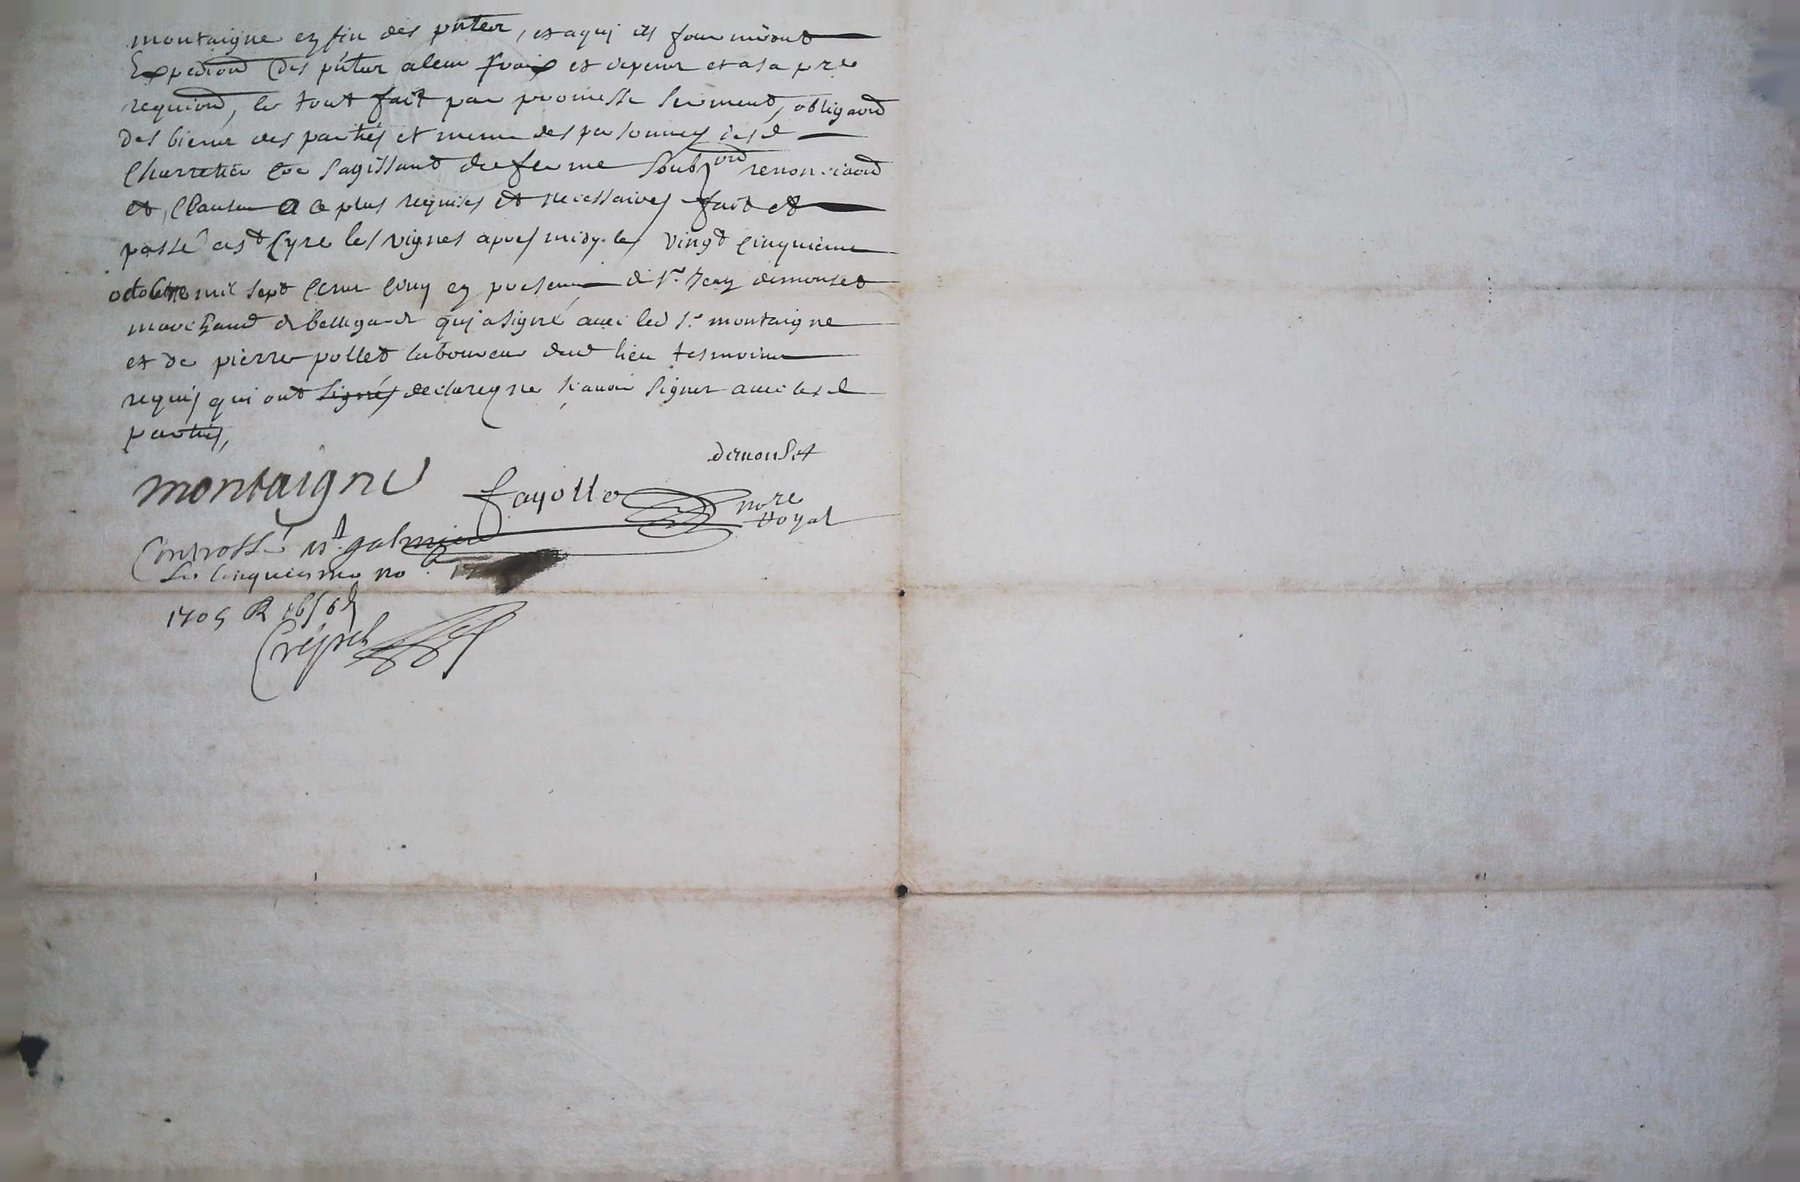 montaigne en fin des pntes, et a quj ils fourniront
Expedion des pntes a leur fraix et depens et a sa pre
requion, le tout fait par promesse serment, obligaon
des biens des parties et mesme des personnes desd
Charretier sagissant de ferme soubzon renonciaon
et clauses a ce plus requises et necessaires fait et
passé a st Cyre les vignes apres midy le vingt cinquieme
octobre mil sept cens cinq en presence de sr Jean demonset
marchand de bellegarde quj a signé avec led sr montaigne
et de pierre pollet laboureur dud lieu tesmoins
requis qui ont signés declare ne sçavoir signer avec lesd
parties,
demonset
montaigne
fayolle nore Royal
Controllé a st galmier
Le cinquiesme no
1705 R